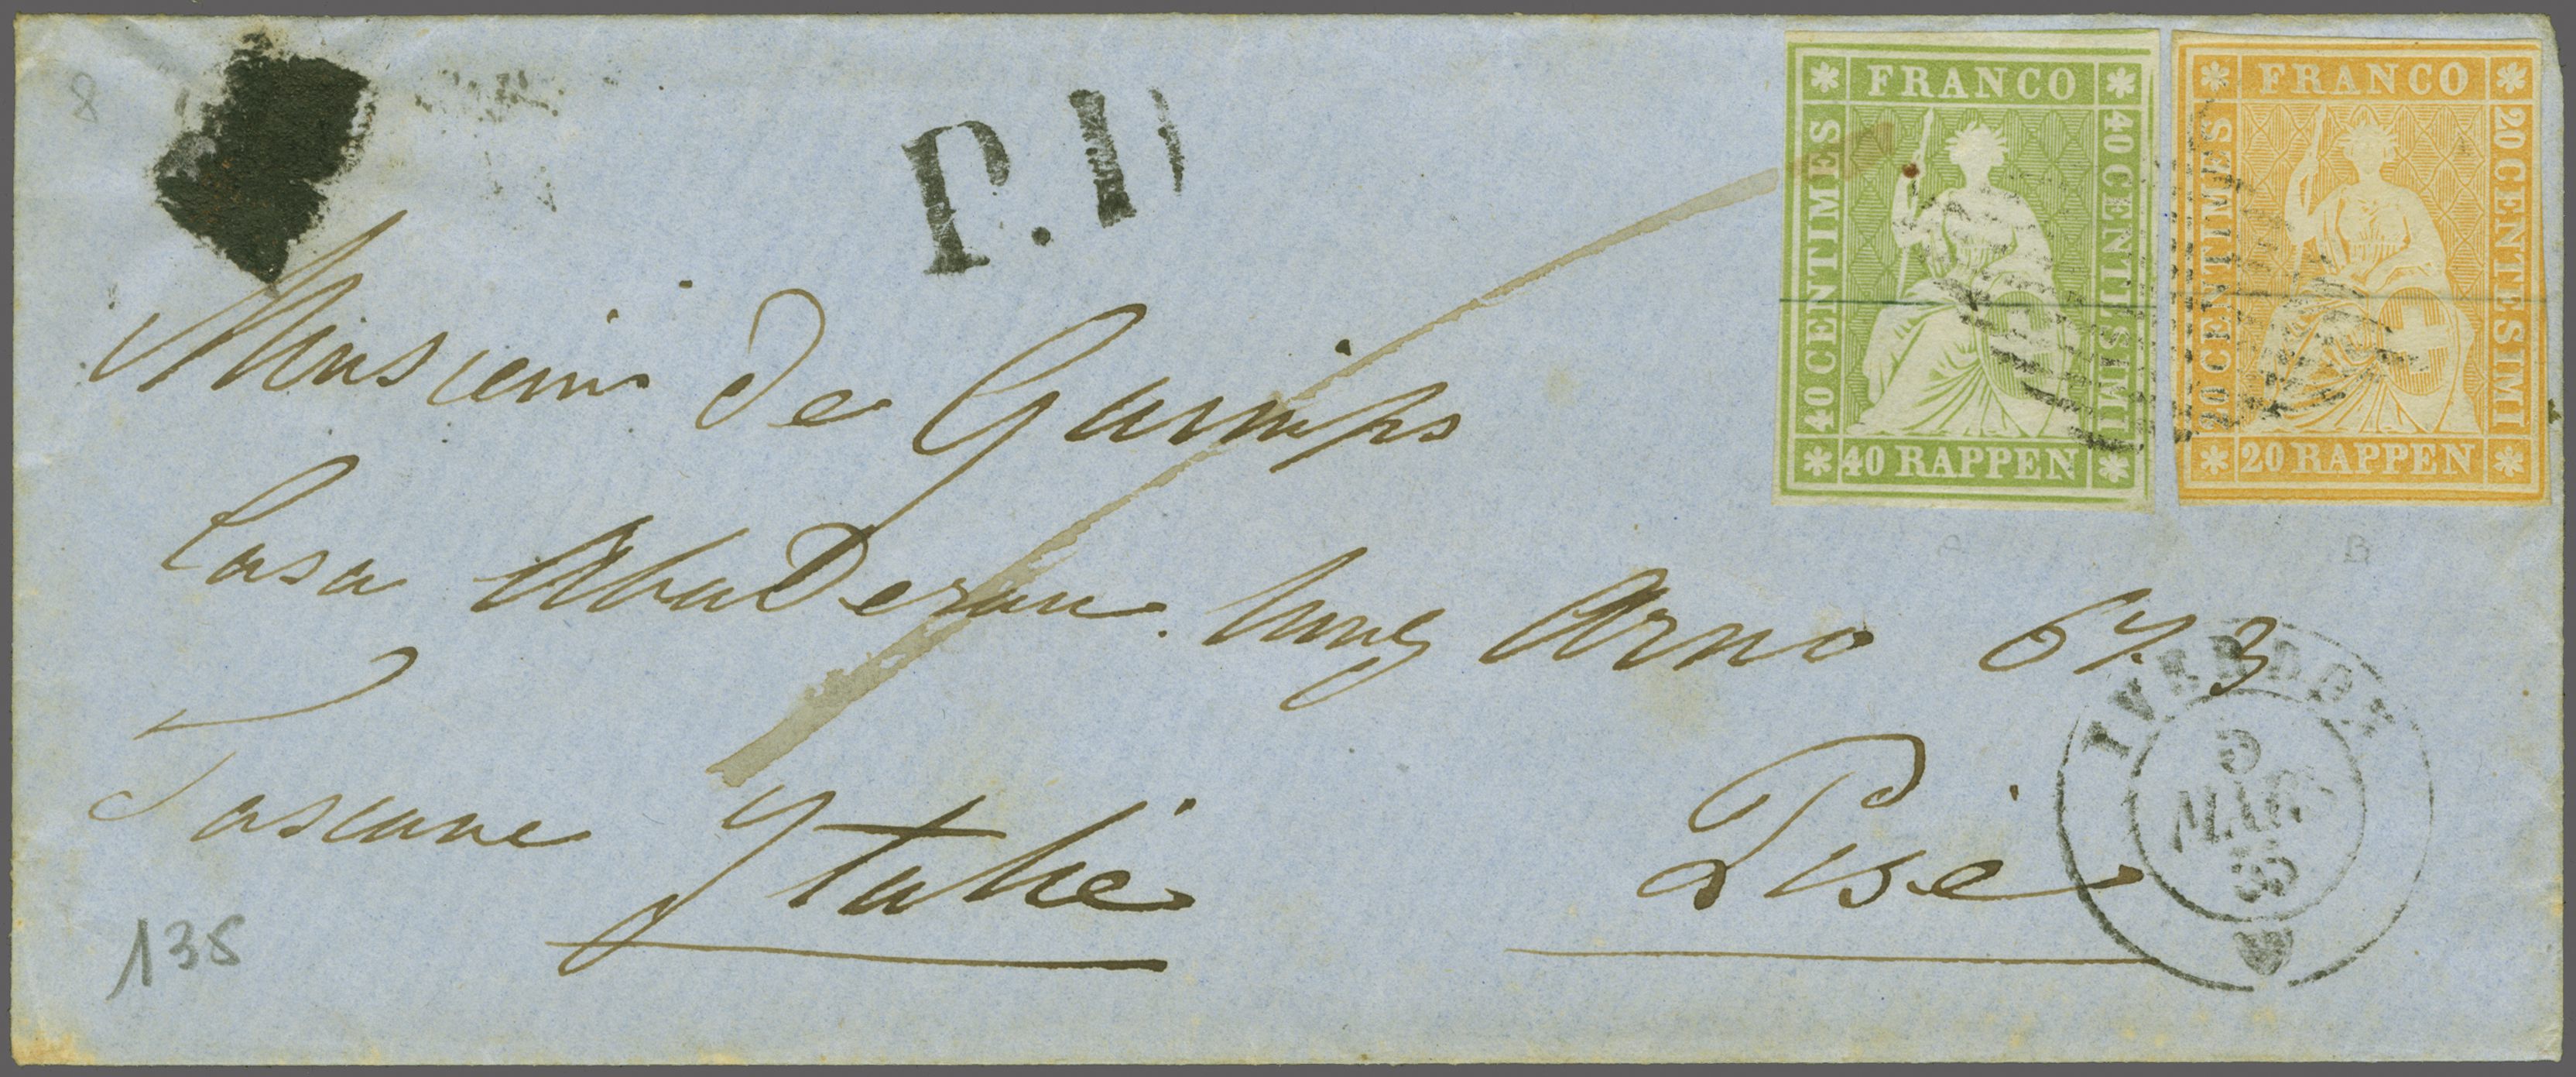 8
P.D
FRANCO
40 CENTIMES
40 CENTESIMI
40 RAPPEN
FRANCO
20 CENTIMES
20 CENTESIMI
20 RAPPEN
Monsieur de Gumps
Casa Lung Arno 673
Toscane Ytalie Pise
YVERDON
5
MARS
55
138